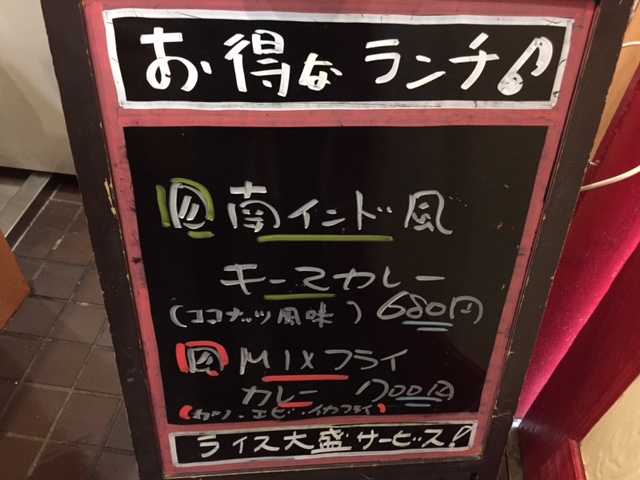 お得なランチ♪
南インド風
キーマカレー
(ココナッツ風味) 680円
MIXフライ
カレー 700円
エビ・イカフライ)
ライス大盛サービス!